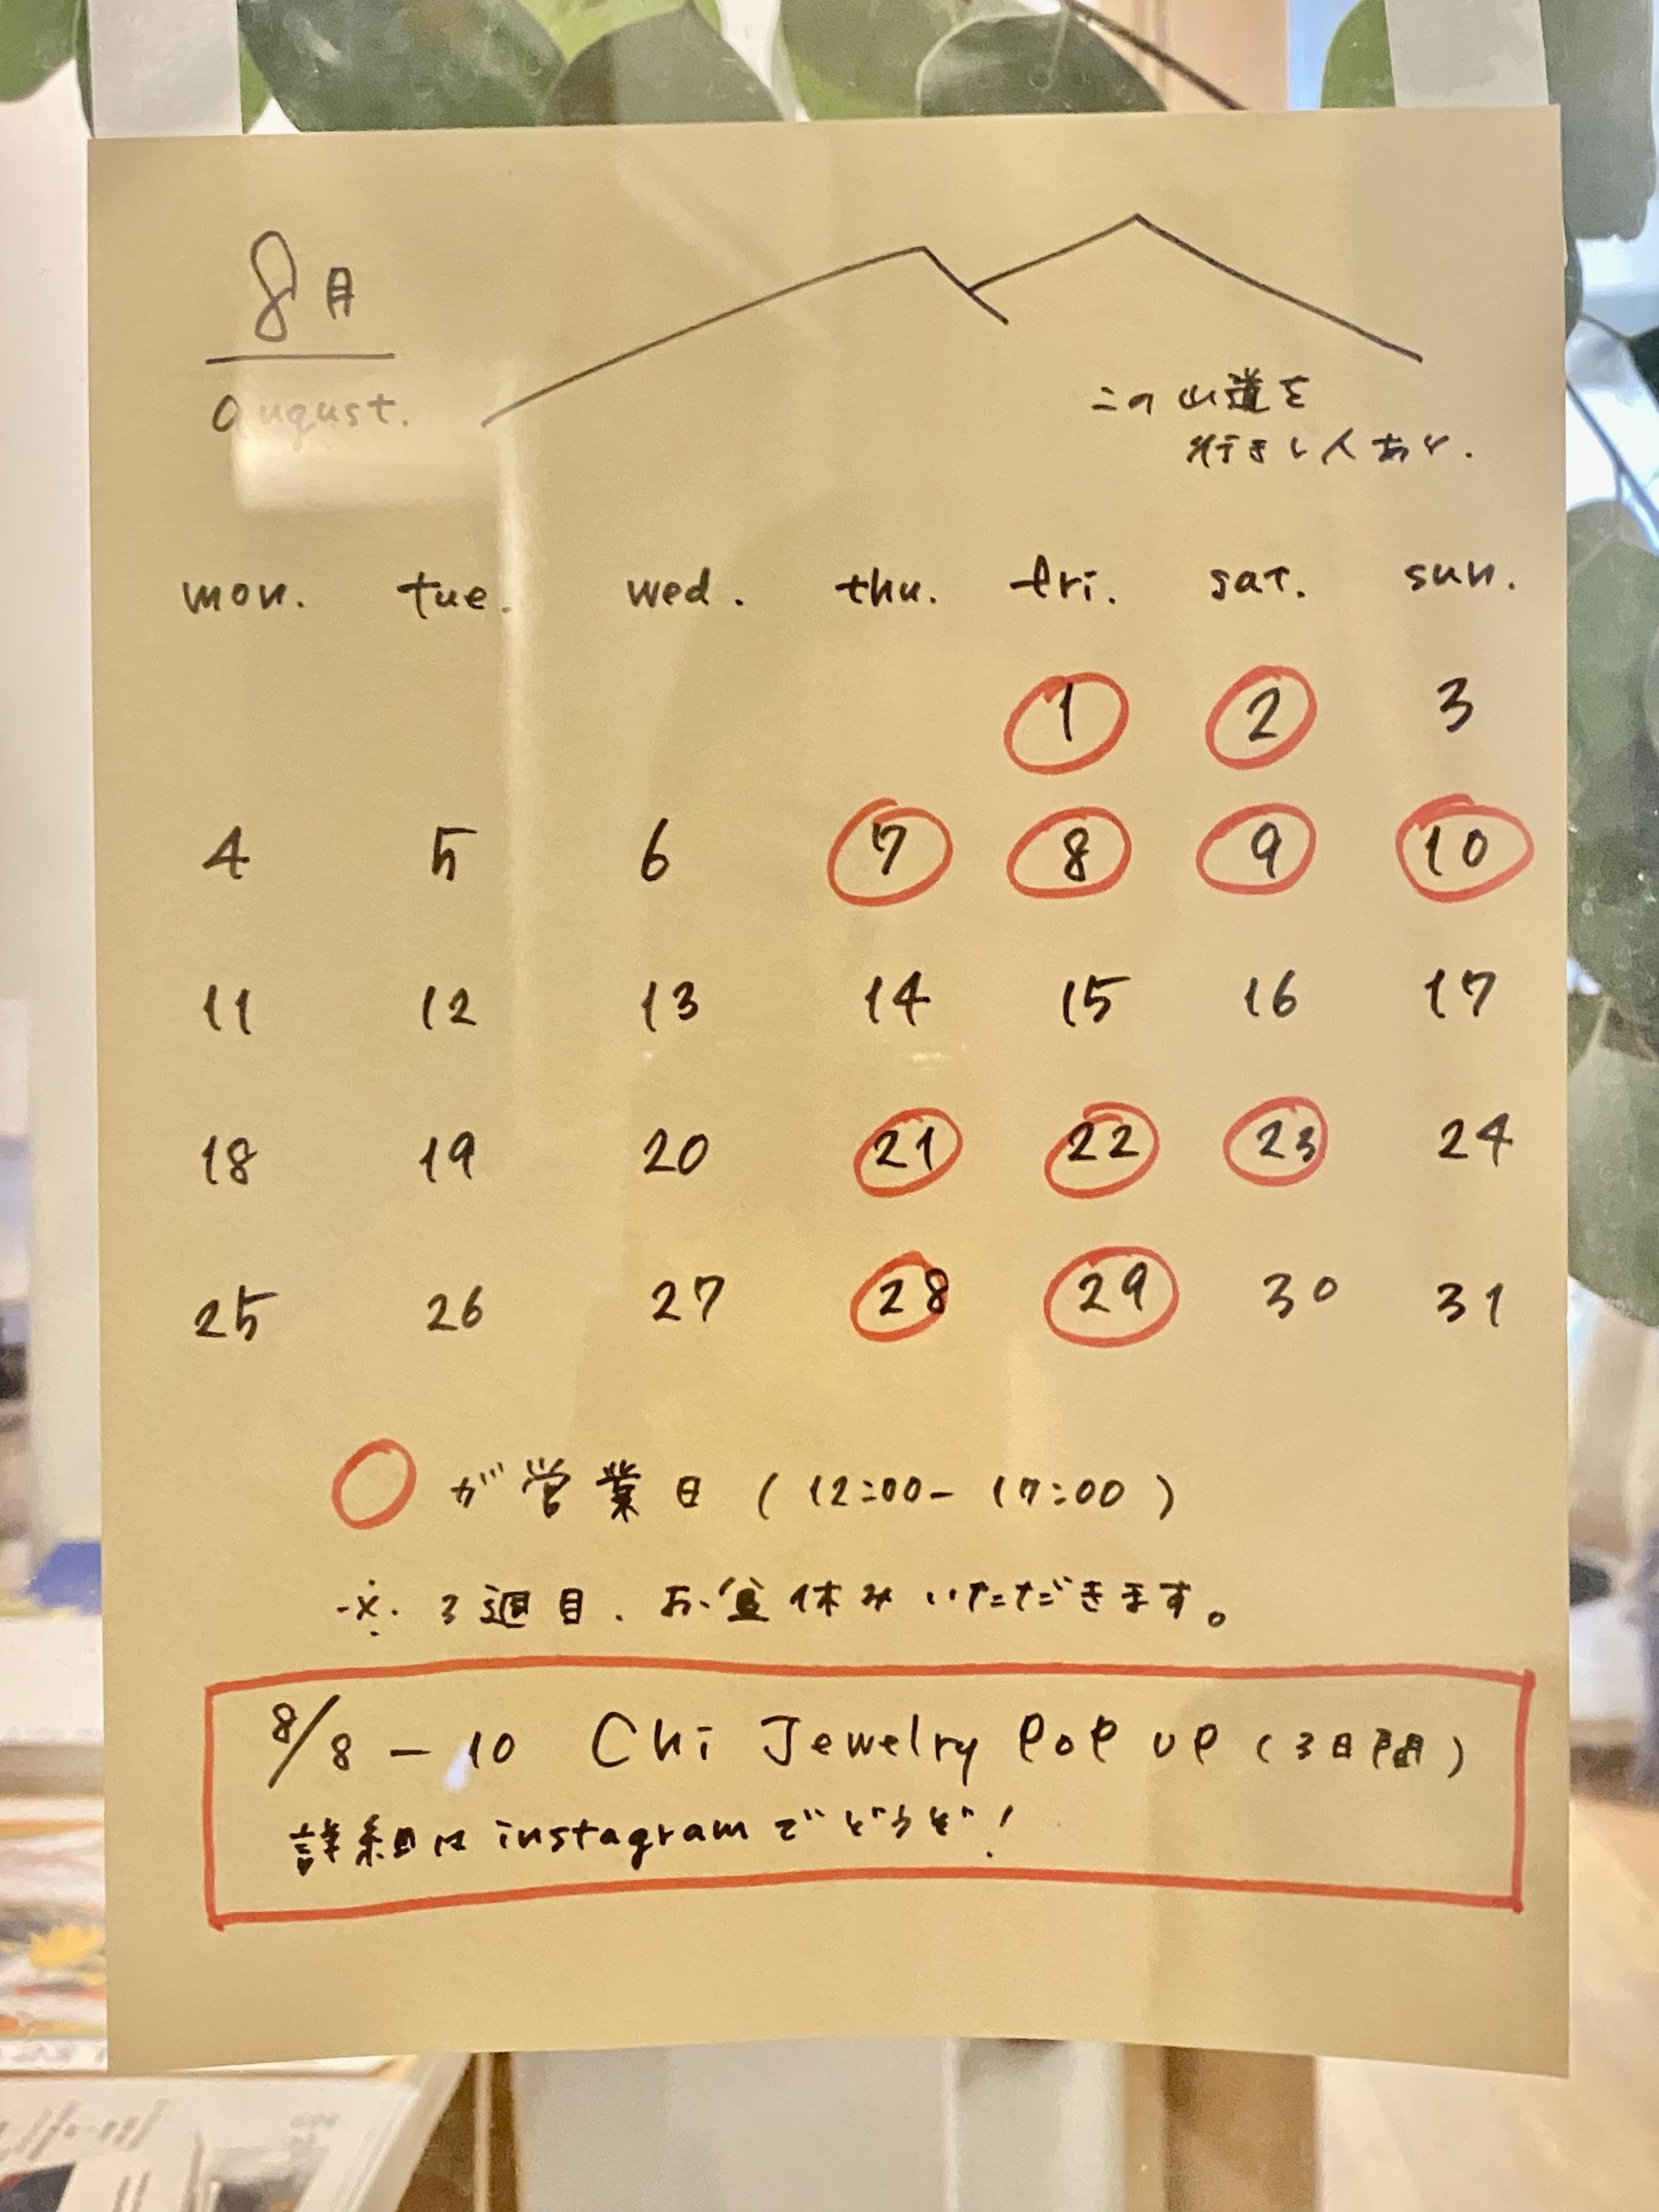 8月
august.
この山道を
行きし人あり.
mon. tue. wed. thu. fri. sat. sun.
1 2 3
4 5 6 7 8 9 10
11 12 13 14 15 16 17
18 19 20 21 22 23 24
25 26 27 28 29 30 31
○が営業日 (12:00-17:00)
※. 3週目、お盆休みいただきます。
8/8-10 Chi Jewelry POP UP (3日間)
詳細はinstagramでどうぞ!